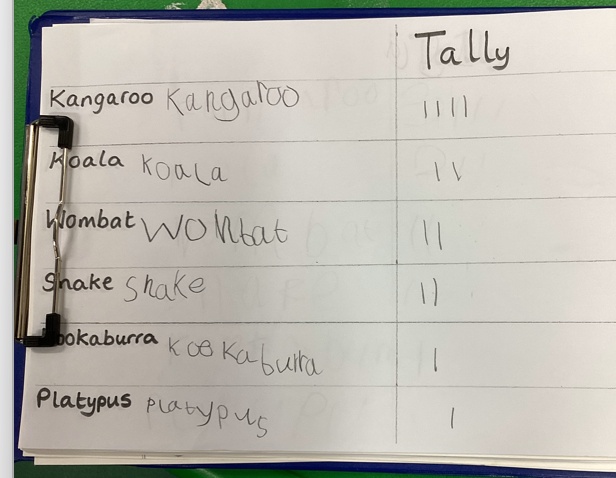 Tally
Kangaroo Kangaroo ||||
Koala Koala ||
Wombat Wombat ||
Snake Snake ||
ookaburra Kookaburra |
Platypus Platypus |